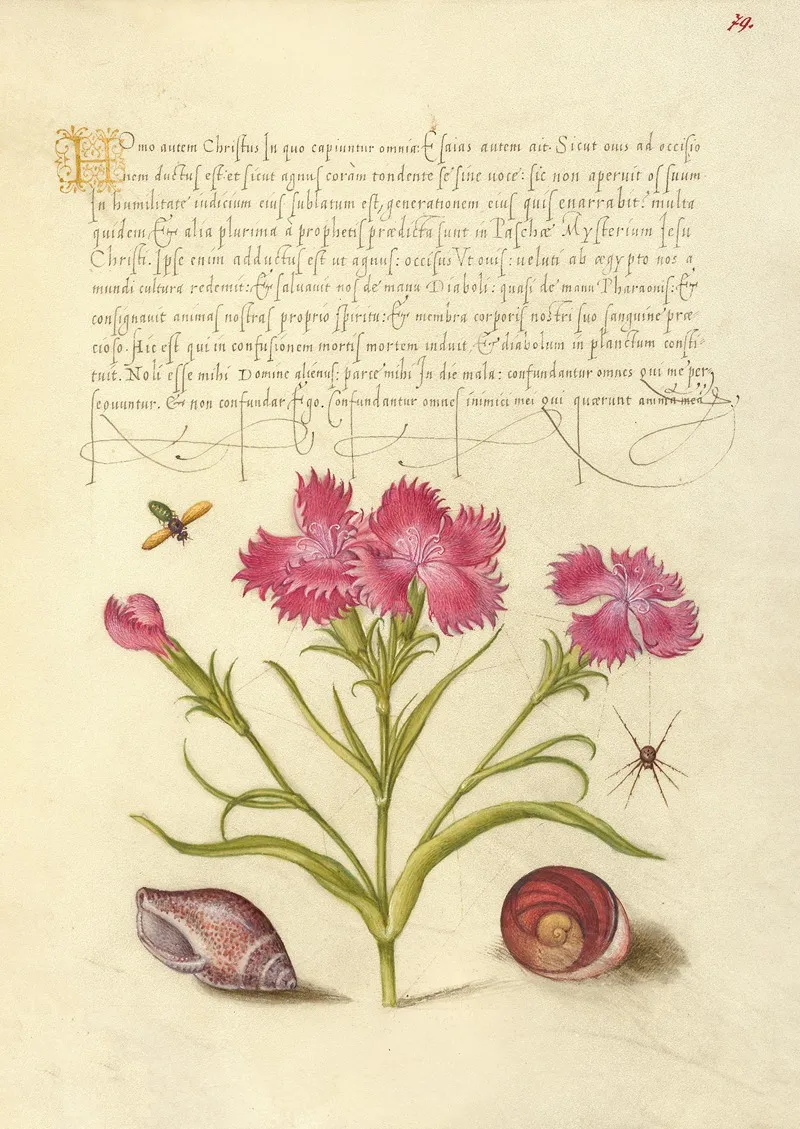 79.
Homo autem Christus In quo capiuntur omnia: Esaias autem ait. Sicut ouis ad occisio
nem ductus est: et sicut agnus coràm tondente se sine uoce: sic non aperuit os suum.
In humilitate iudicium eius sublatum est, generationem eius quis enarrabit? multa
quidem, Et alia plurima à prophetis prædicta sunt in Paschæ Mysterium Iesu
Christi. Ipse enim adductus est ut agnus: occisus Vt ouis: ueluti ab ægypto nos a
mundi cultura redemit: Et saluauit nos de manu Diaboli: quasi de manu Pharaonis: Et
consignauit animas nostras proprio spiritu: Et membra corporis nostri suo sanguine præ-
cioso. Hic est qui in confusionem mortis mortem induit, Et diabolum in planctum consti-
tuit. Noli esse mihi Domine alienus: parce mihi In die mala: confundantur omnes qui me per
sequuntur. Et non confundar Ego. Confundantur omnes inimici mei qui quærunt animā meā